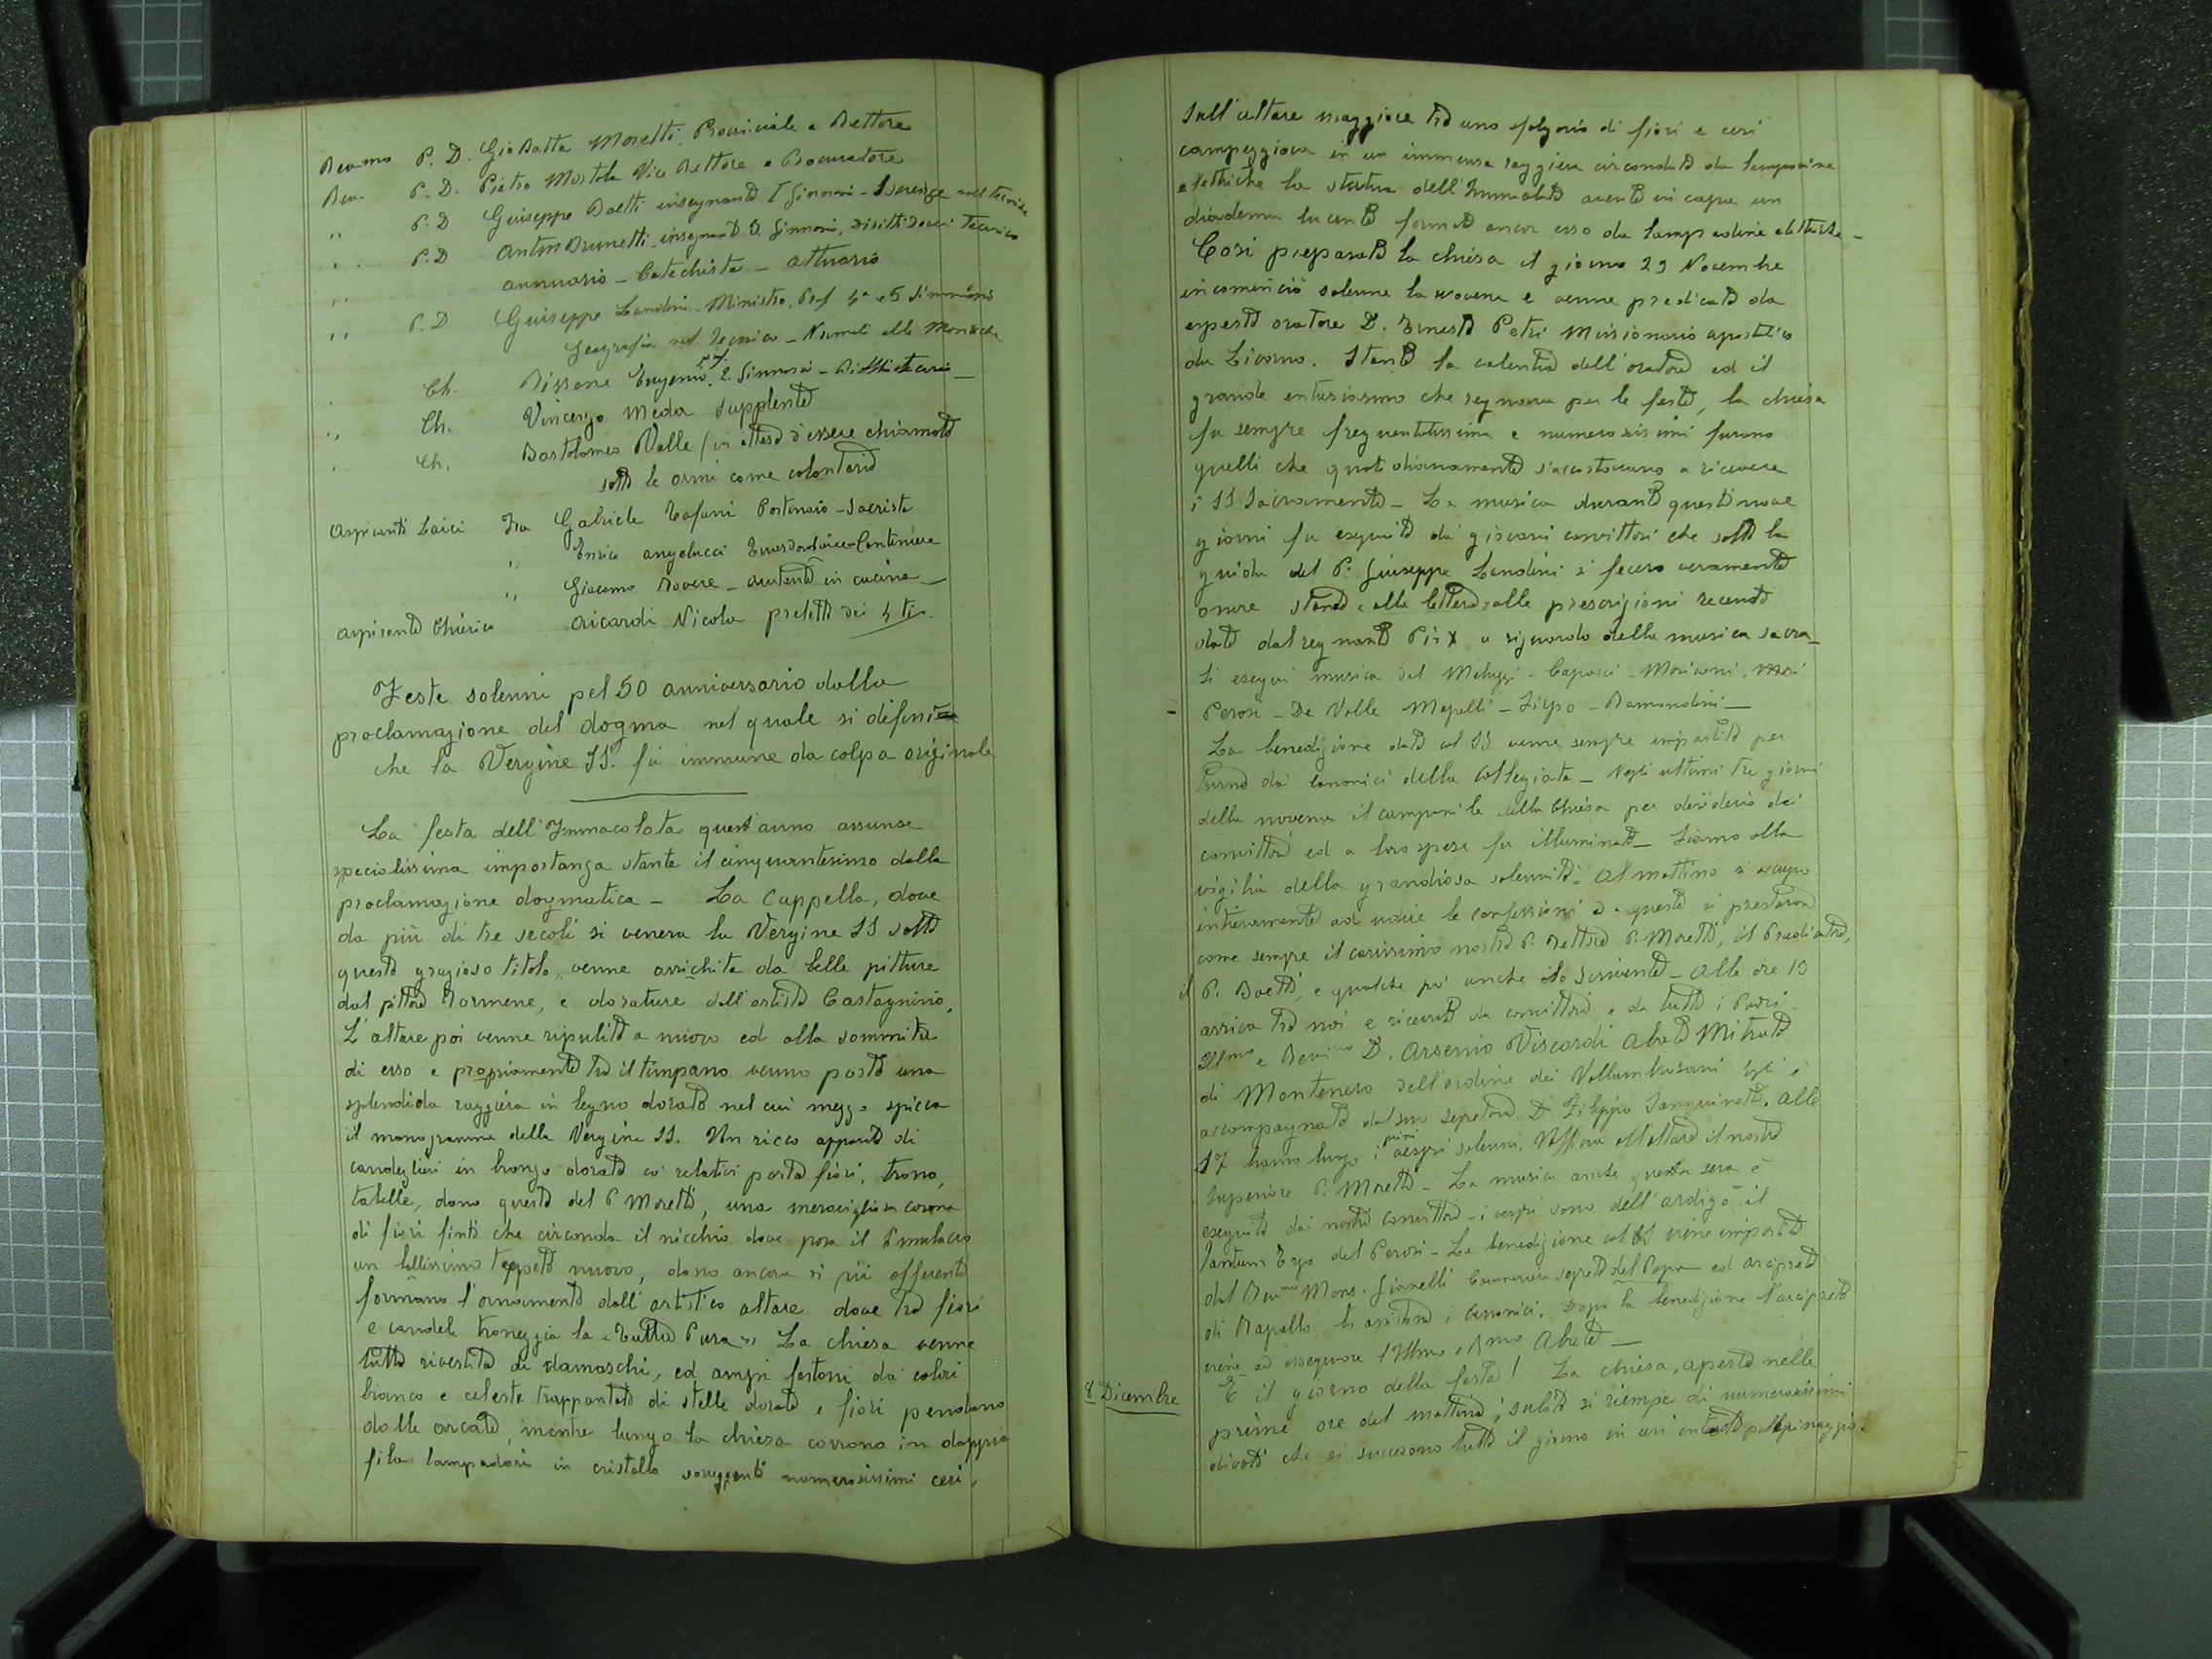 Rev.mo P. D. Gio Batta Moretti, Provinciale e Rettore
Rev. P. D. Pietro Mortola Vice Rettore e Procuratore
" P. D Giuseppe Boetti insegnante I Ginnasi - Scienze nel tecniche
" P. D Anton Brunetti insegnante 3. Ginnasi, Diritti Doveri Tecnico
" annuario - Catechista - Attuario
" P. D Giuseppe Landini - Ministro, Prof 4a e 5 Ginnasio
Geografia nel Tecnico - Normali alle Monache
Ch. Rissone Eugenio, 2. Ginnasi - Bibliotecario -
" Ch. Vincenzo Meda Supplente
" Ch. Bartolomeo Valle (in attesa d'essere chiamato
sotto le armi come volontario
Aspiranti Laici Fra Gabriele Tafani Portinaio - Sacrista
" Enrico Angelucci Cantiniere
" Giacomo Rovere - aiutante in cucina -
Aspirante Chierico Aicardi Nicola prefetto dei 4ti.
Feste solenni pel 50 anniversario dalla
proclamazione del dogma nel quale si definì
che la Vergine SS. fu immune da colpa originale
La festa dell'Immacolata quest'anno assunse
specialissima importanza stante il cinquantesimo dalla
proclamazione dogmatica - La Cappella, dove
da più di tre secoli si venera la Vergine SS sotto
questo grazioso titolo, venne arrichita da belle pitture
dal pittore Tormene, e dorature dell'artista Castagnino,
L'altare poi venne ripulito a nuovo ed alla sommità
di esso e propriamente tra il timpano venne posta una
splendida raggiera in legno dorato nel cui mezzo spicca
il monogramma della Vergine SS. Un ricco apparato di
candeglieri in bronzo dorato coi relativi porta fiori, trono,
tabelle, dono questo del P Moretti, una meravigliosa corona
di fiori finti che circonda il nicchio dove posa il simulacro
un bellissimo tappeto nuovo, dono ancora di pii offerenti
formano l'ornamento dell'artistico altare dove tra fiori
e candele troneggia la "Tutta Pura" La chiesa venne
tutta rivestita di damaschi, ed ampi festoni dai colori
bianco e celeste trappuntato di stelle dorate e fiori pendono
dalle arcate, mentre lungo la chiesa corrono in doppia
fila lampadari in cristallo sorreggenti numerosissimi ceri.
Sull'altare maggiore tra uno sfolgorio di fiori e ceri
campeggiava in un immensa raggiera circondata da lampadine
elettriche la statua dell'Immacolata avente in capo un
diadema lucente formato ancor esso da lampadine elettriche -
Così preparata la chiesa il giorno 29 Novembre
incominciò solenne la novena e venne predicata da
esperto oratore D. Ernesto Petri Missionario apostolico
da Livorno. Stante la valentia dell'oratore ed il
grande entusiasmo che regnava per le feste, la chiesa
fu sempre frequentatissima e numerosissimi furono
quelli che quotidianamente s'accostavano a ricevere
i SS Sacramenti - La musica durante questi nove
giorni fu eseguita da giovani convittori che sotto la
guida del P. Giuseppe Landini si fecero veramente
onore stando alla lettera alle prescrizioni recenti
date dal regnante Pio X a riguardo della musica sacra -
Si eseguì musica del Meluzzi - Capocci - Moriconi,
Perosi - De Valle Mapelli - - Bamondini -
La benedizione data col SS venne sempre impartita per
turno dai Canonici della Collegiata - Negli ultimi tre giorni
della novena il campanile della Chiesa per desiderio dei
convittori ed a loro spese fu illuminato - Siamo alla
vigilia della grandiosa solennità - Al mattino si occupò
intieramente ad udire le confessioni e a questo si prestarono
come sempre il carissimo nostro P. Rettore P. Moretti, il Predicatore,
il P. Boetti, e qualche po' anche lo scrivente - Alle ore 15
arriva tra noi e ricevuto da convittori e da tutti i Padri
Ill.mo e Rev.mo D. Arsenio Viscardi Abate Mitrato
di Montenero dell'ordine dei Vallombrosani Egli è
accompagnato dal suo segretario D. Filippo Sanguinetti. Alle
17 hanno luogo i primi vespri solenni. Ufficia all'altare il nostro
Superiore P. Moretti - La musica anche questa sera è
eseguita dai nostri convittori - i vespri sono dell'Ardigò il
Tantum Ergo del Perosi - La benedizione col SS viene impartita
dal Rev.mo Mons. Gianelli Cameriere segreto del Papa ed arciprete
di Rapallo, lo assistono i Canonici. Dopo la benedizione l'arciprete
viene ad ossequiare l'Ill.mo e R.mo Abate -
8 Dicembre È il giorno della festa! La chiesa, aperta nelle
prime ore del mattino, subito si riempie di numerosissimi
divoti che si succedono tutto il giorno in un pellegrinaggio.